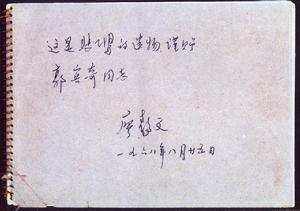 这是悲鸿的遗物谨
郭奇同志
廖静文
一九六八年八月廿五日